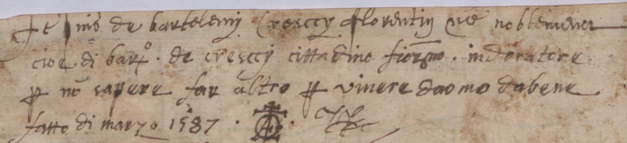 de bartolemi Cresccy florentin
cioe di bart.o de cresccy cittadino fior.no indoratore
p no sapere far altro p vivere da omo dabene
fatto di marzo 1587